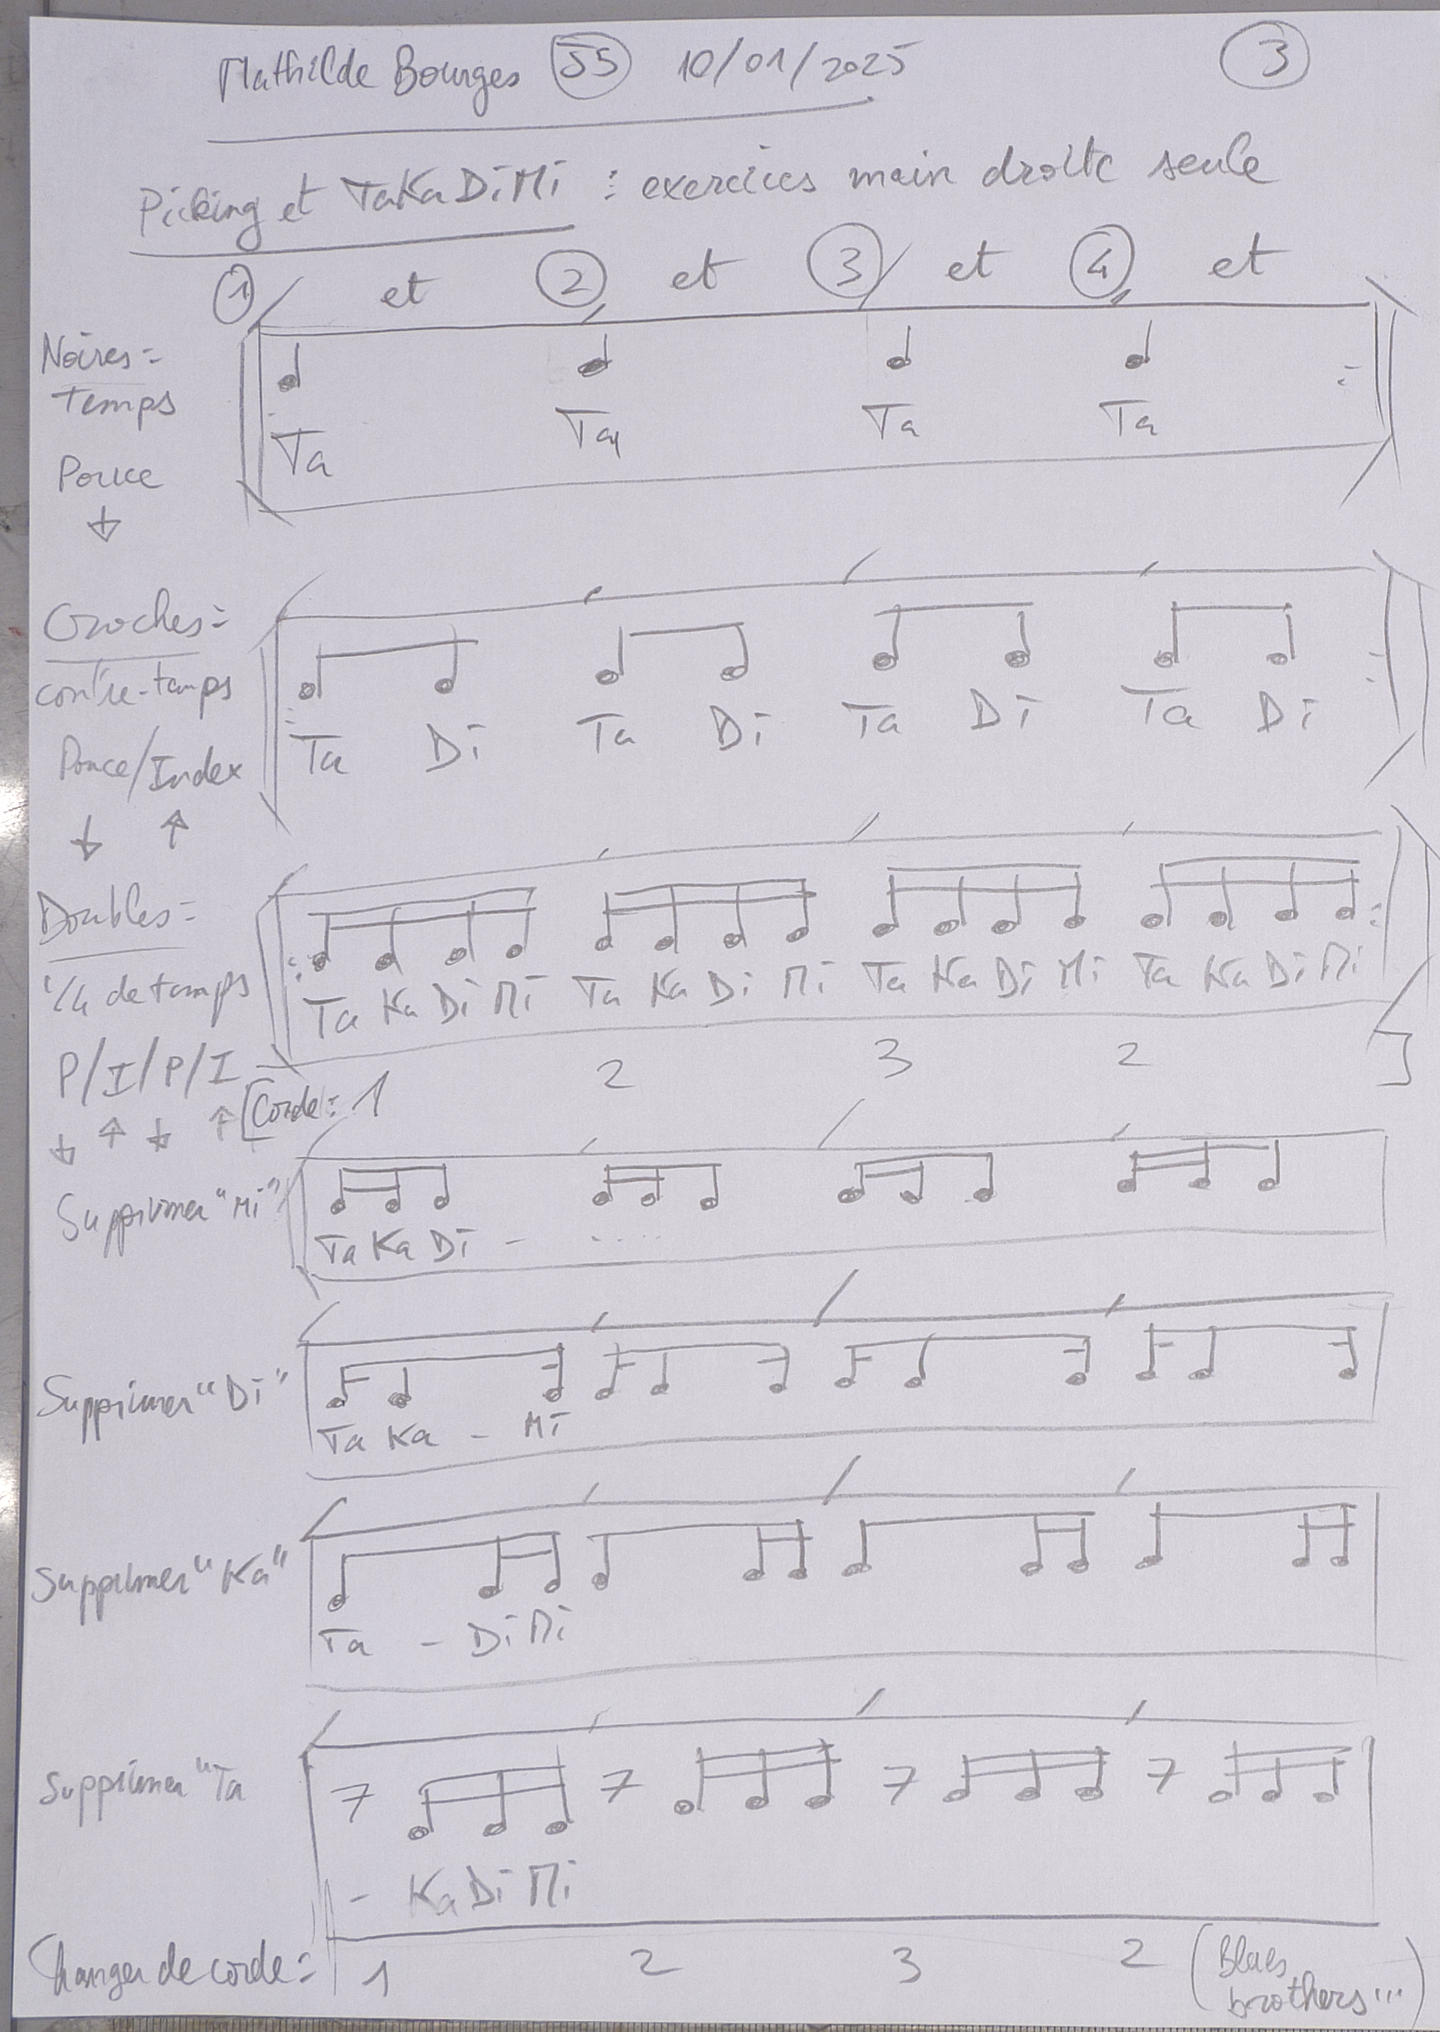 Mathilde Bourges 55 10/01/2025 3
Picking et TaKaDiMi : exercices main droite seule
1 et 2 et 3 et 4 et
Noires =
temps
Ta Ta Ta Ta
Pouce
↓
Croches =
contre-temps
Ta Di Ta Di Ta Di Ta Di
Pouce/Index
↓ ↑
Doubles =
1/4 de temps
Ta Ka Di Mi Ta Ka Di Mi Ta Ka Di Mi Ta Ka Di Mi
P/I/P/I
↓ ↑ ↓ ↑
[Corde = 1 2 3 2 ]
Supprimer "Mi"
Ta Ka Di - .....
Supprimer "Di"
Ta Ka - Mi
Supprimer "Ka"
Ta - Di Mi
Supprimer "Ta
- Ka Di Mi
Changer de corde = 1 2 3 2 (Blues
brothers...)